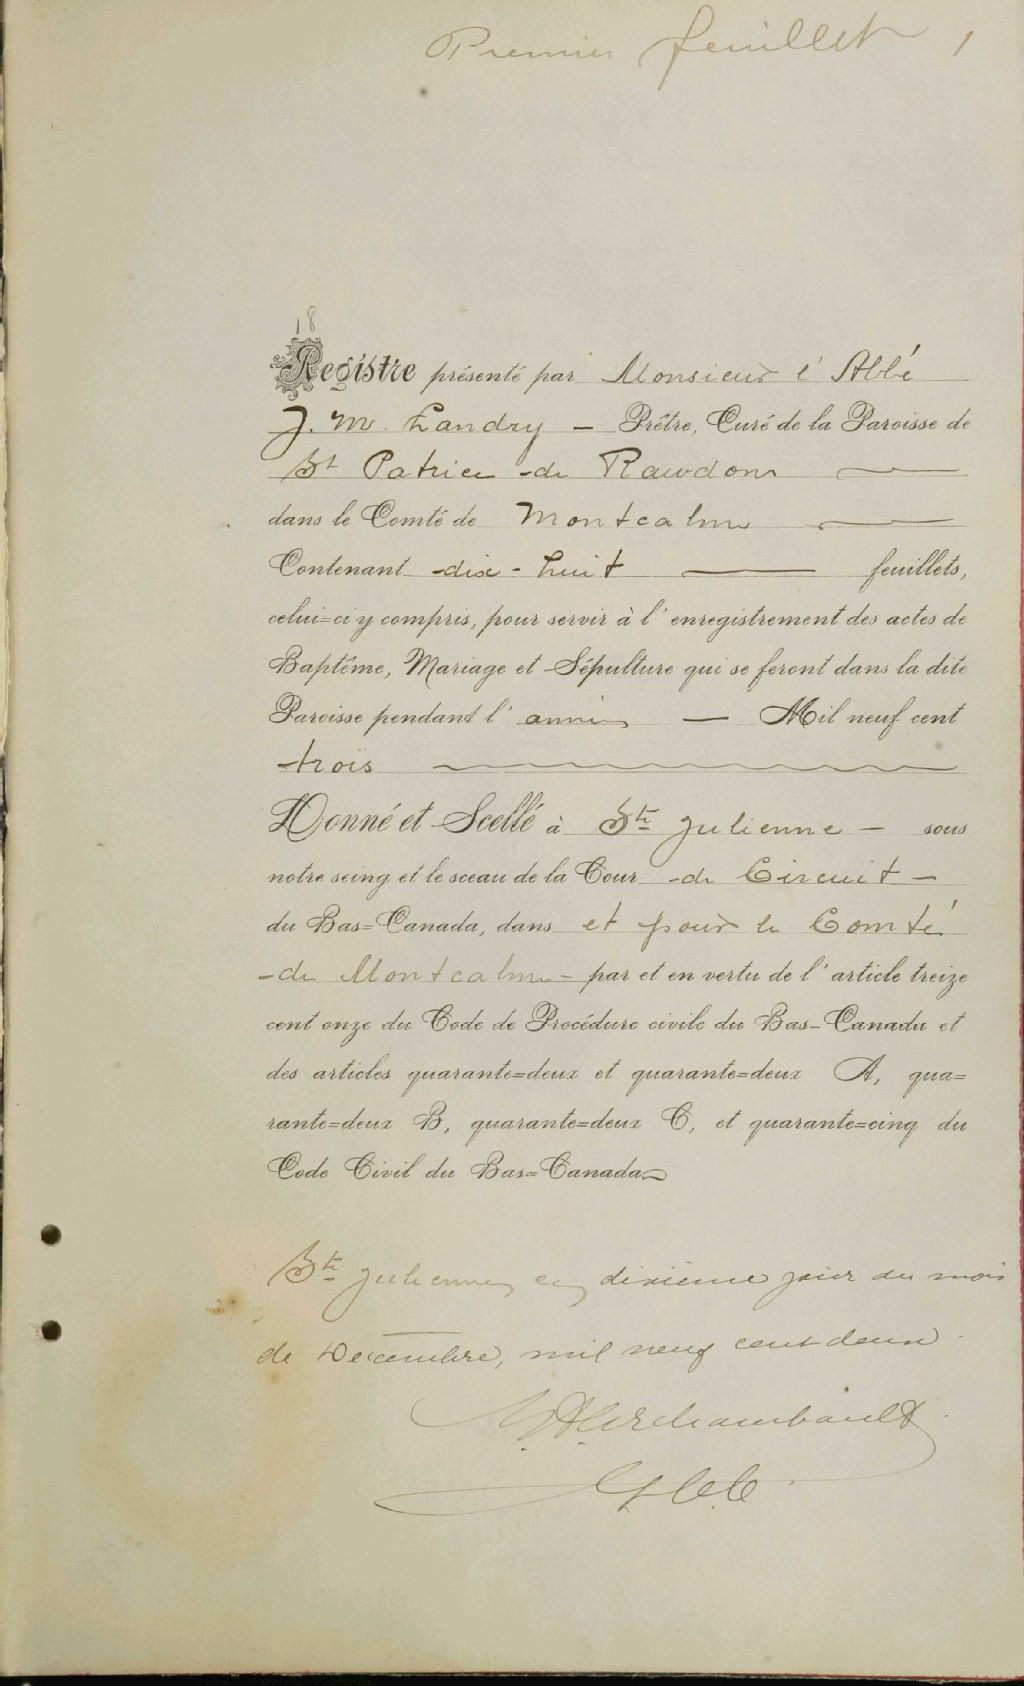 Premier feuillet 1
18
Registre présenté par Monsieur l'Abbé
J. M. Landry — Prêtre, Curé de la Paroisse de
St Patrice de Rawdon
dans le Comté de Montcalm
Contenant dix-huit — feuillets,
celui=ci y compris, pour servir à l'enregistrement des actes de
Baptême, Mariage et Sépulture qui se feront dans la dite
Paroisse pendant l'année — Mil neuf cent
trois
Donné et Scellé à Ste Julienne — sous
notre seing et le sceau de la Cour de Circuit —
du Bas=Canada, dans et pour le Comté
de Montcalm — par et en vertu de l'article treize
cent onze du Code de Procédure civile du Bas-Canada et
des articles quarante=deux et quarante=deux A, qua=
rante=deux B, quarante=deux C, et quarante=cinq du
Code Civil du Bas=Canada
Ste Julienne ce dixième jour du mois
de Décembre, mil neuf cent deux
Archambault